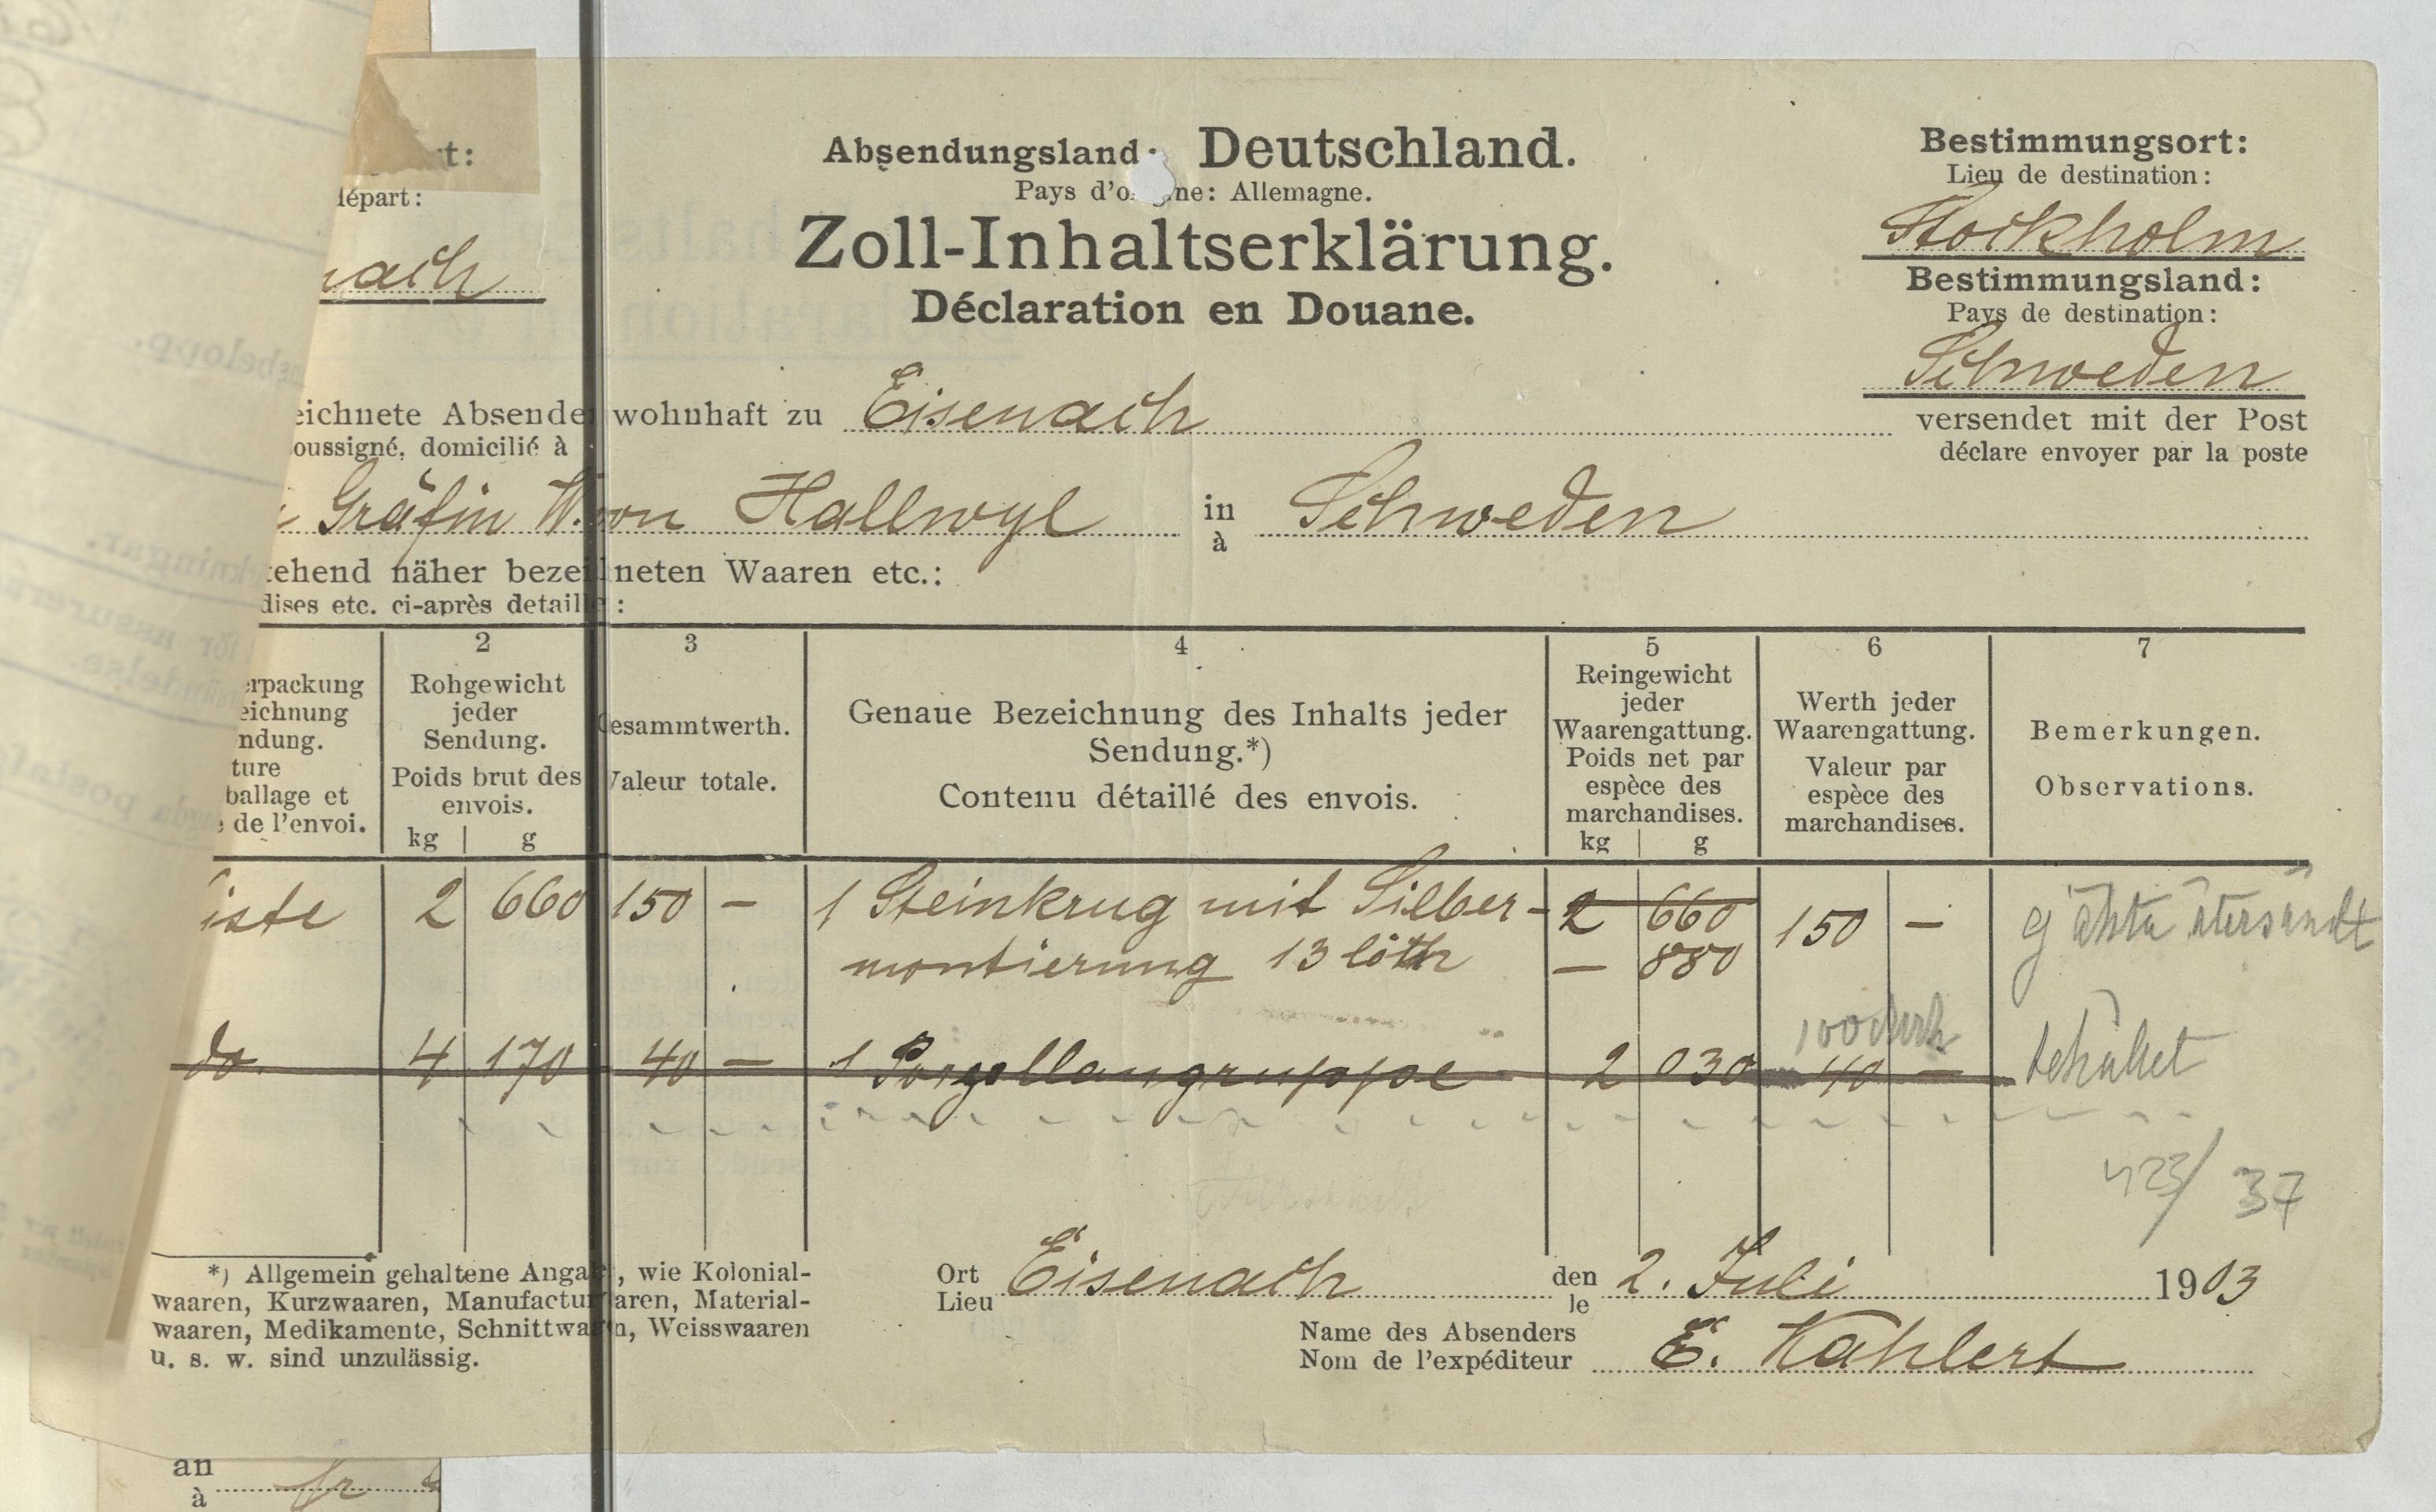 t:
départ:
nach
Absendungsland: Deutschland.
Pays d'o ne: Allemagne.
Zoll-Inhaltserklärung.
Déclaration en Douane.
Bestimmungsort:
Lieu de destination:
Stockholm
Bestimmungsland:
Pays de destination:
Schweden
eichnete Absende wohnhaft zu Eisenach versendet mit der Post
oussigné, domicilié à déclare envoyer par la poste
Gräfin W. von Hallwyl in Schweden
à
tehend näher bezei neten Waaren etc.:
dises etc. ci-après detaill :
erpackung
eichnung
ndung.
ture
ballage et
de l'envoi.
2
Rohgewicht
jeder
Sendung.
Poids brut des
envois.
kg g
3
Gesammtwerth.
Valeur totale.
4
Genaue Bezeichnung des Inhalts jeder
Sendung.*)
Contenu détaillé des envois.
5
Reingewicht
jeder
Waarengattung.
Poids net par
espèce des
marchandises.
kg g
6
Werth jeder
Waarengattung.
Valeur par
espèce des
marchandises.
7
Bemerkungen.
Observations.
iste 2 660 150 — 1 Steinkrug mit Silber- 2 660 150 —
montierung 13 löth — 880
do. 4 170 40 — 1 Porzellangruppe 2 030 40 —
423/37
*) Allgemein gehaltene Anga , wie Kolonial-
waaren, Kurzwaaren, Manufactur aren, Material-
waaren, Medikamente, Schnittwa n, Weisswaaren
u. s. w. sind unzulässig.
Ort Eisenach den 2. Juli 1903
Lieu le
Name des Absenders
Nom de l'expéditeur E. Kahlert
an
à